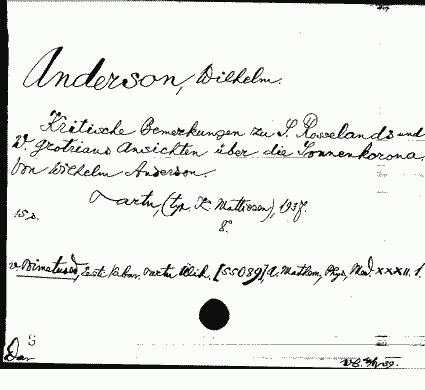 Anderson, Wilhelm.
Kritische Bemerkungen zu S. Rosselands und
W. Grotrians Ansichten über die Sonnenkorona.
Von Wilhelm Anderson.
Tartu, (typ. K. Mattiesen), 1937.
15 s. 8°.
v. Toimetused, Eesti Vabar. Tartu Ülik. [55089], A. Mathem., Phys., Med. XXXII. 1.